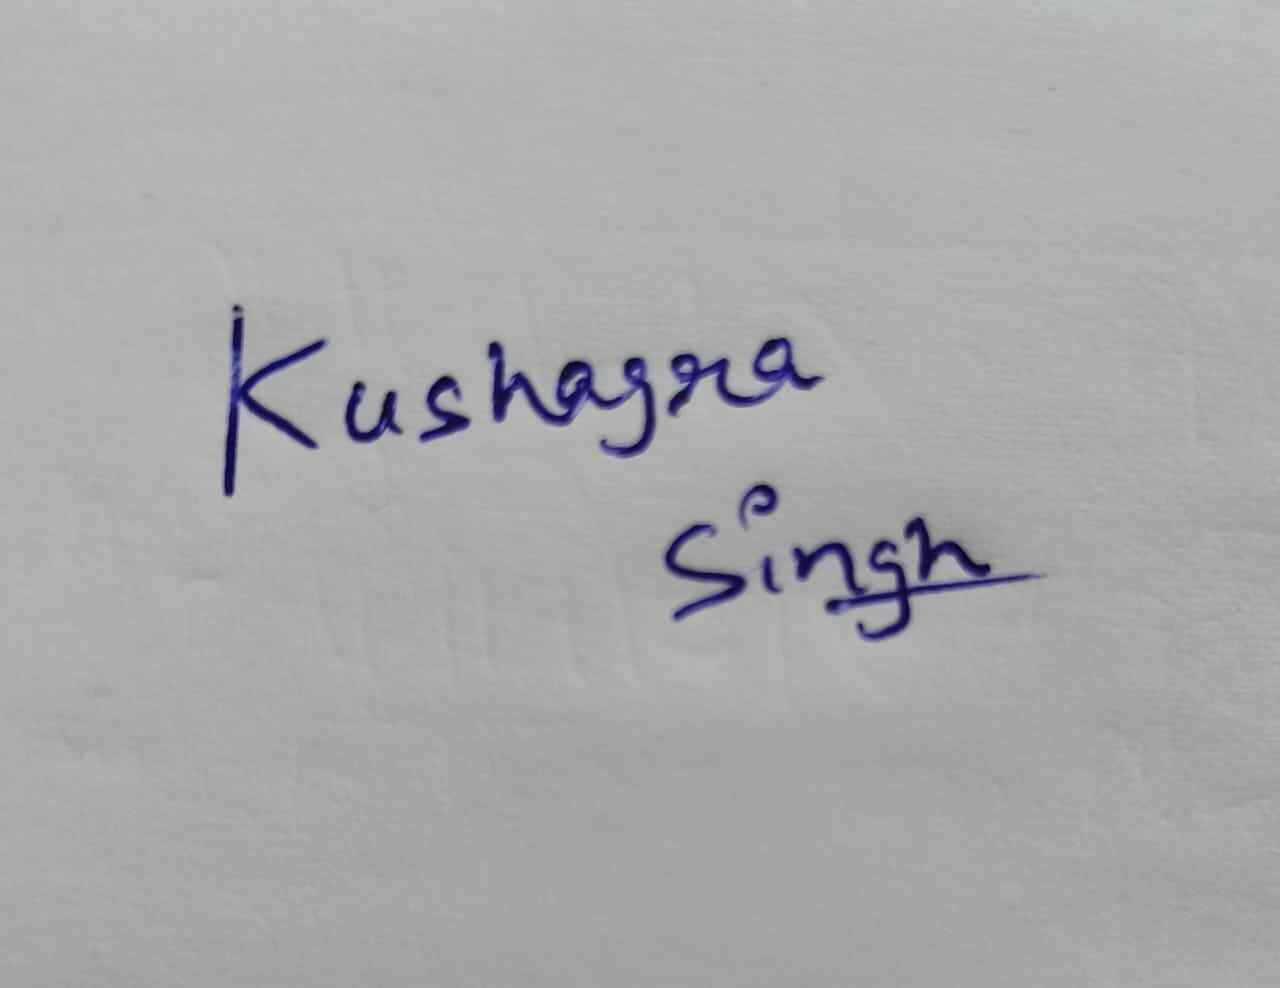 Kushagra
Singh